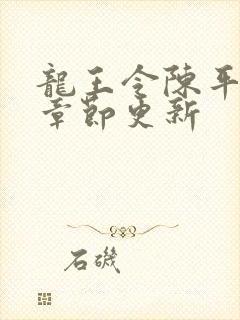 龍王令陳平
章節更新
石磯